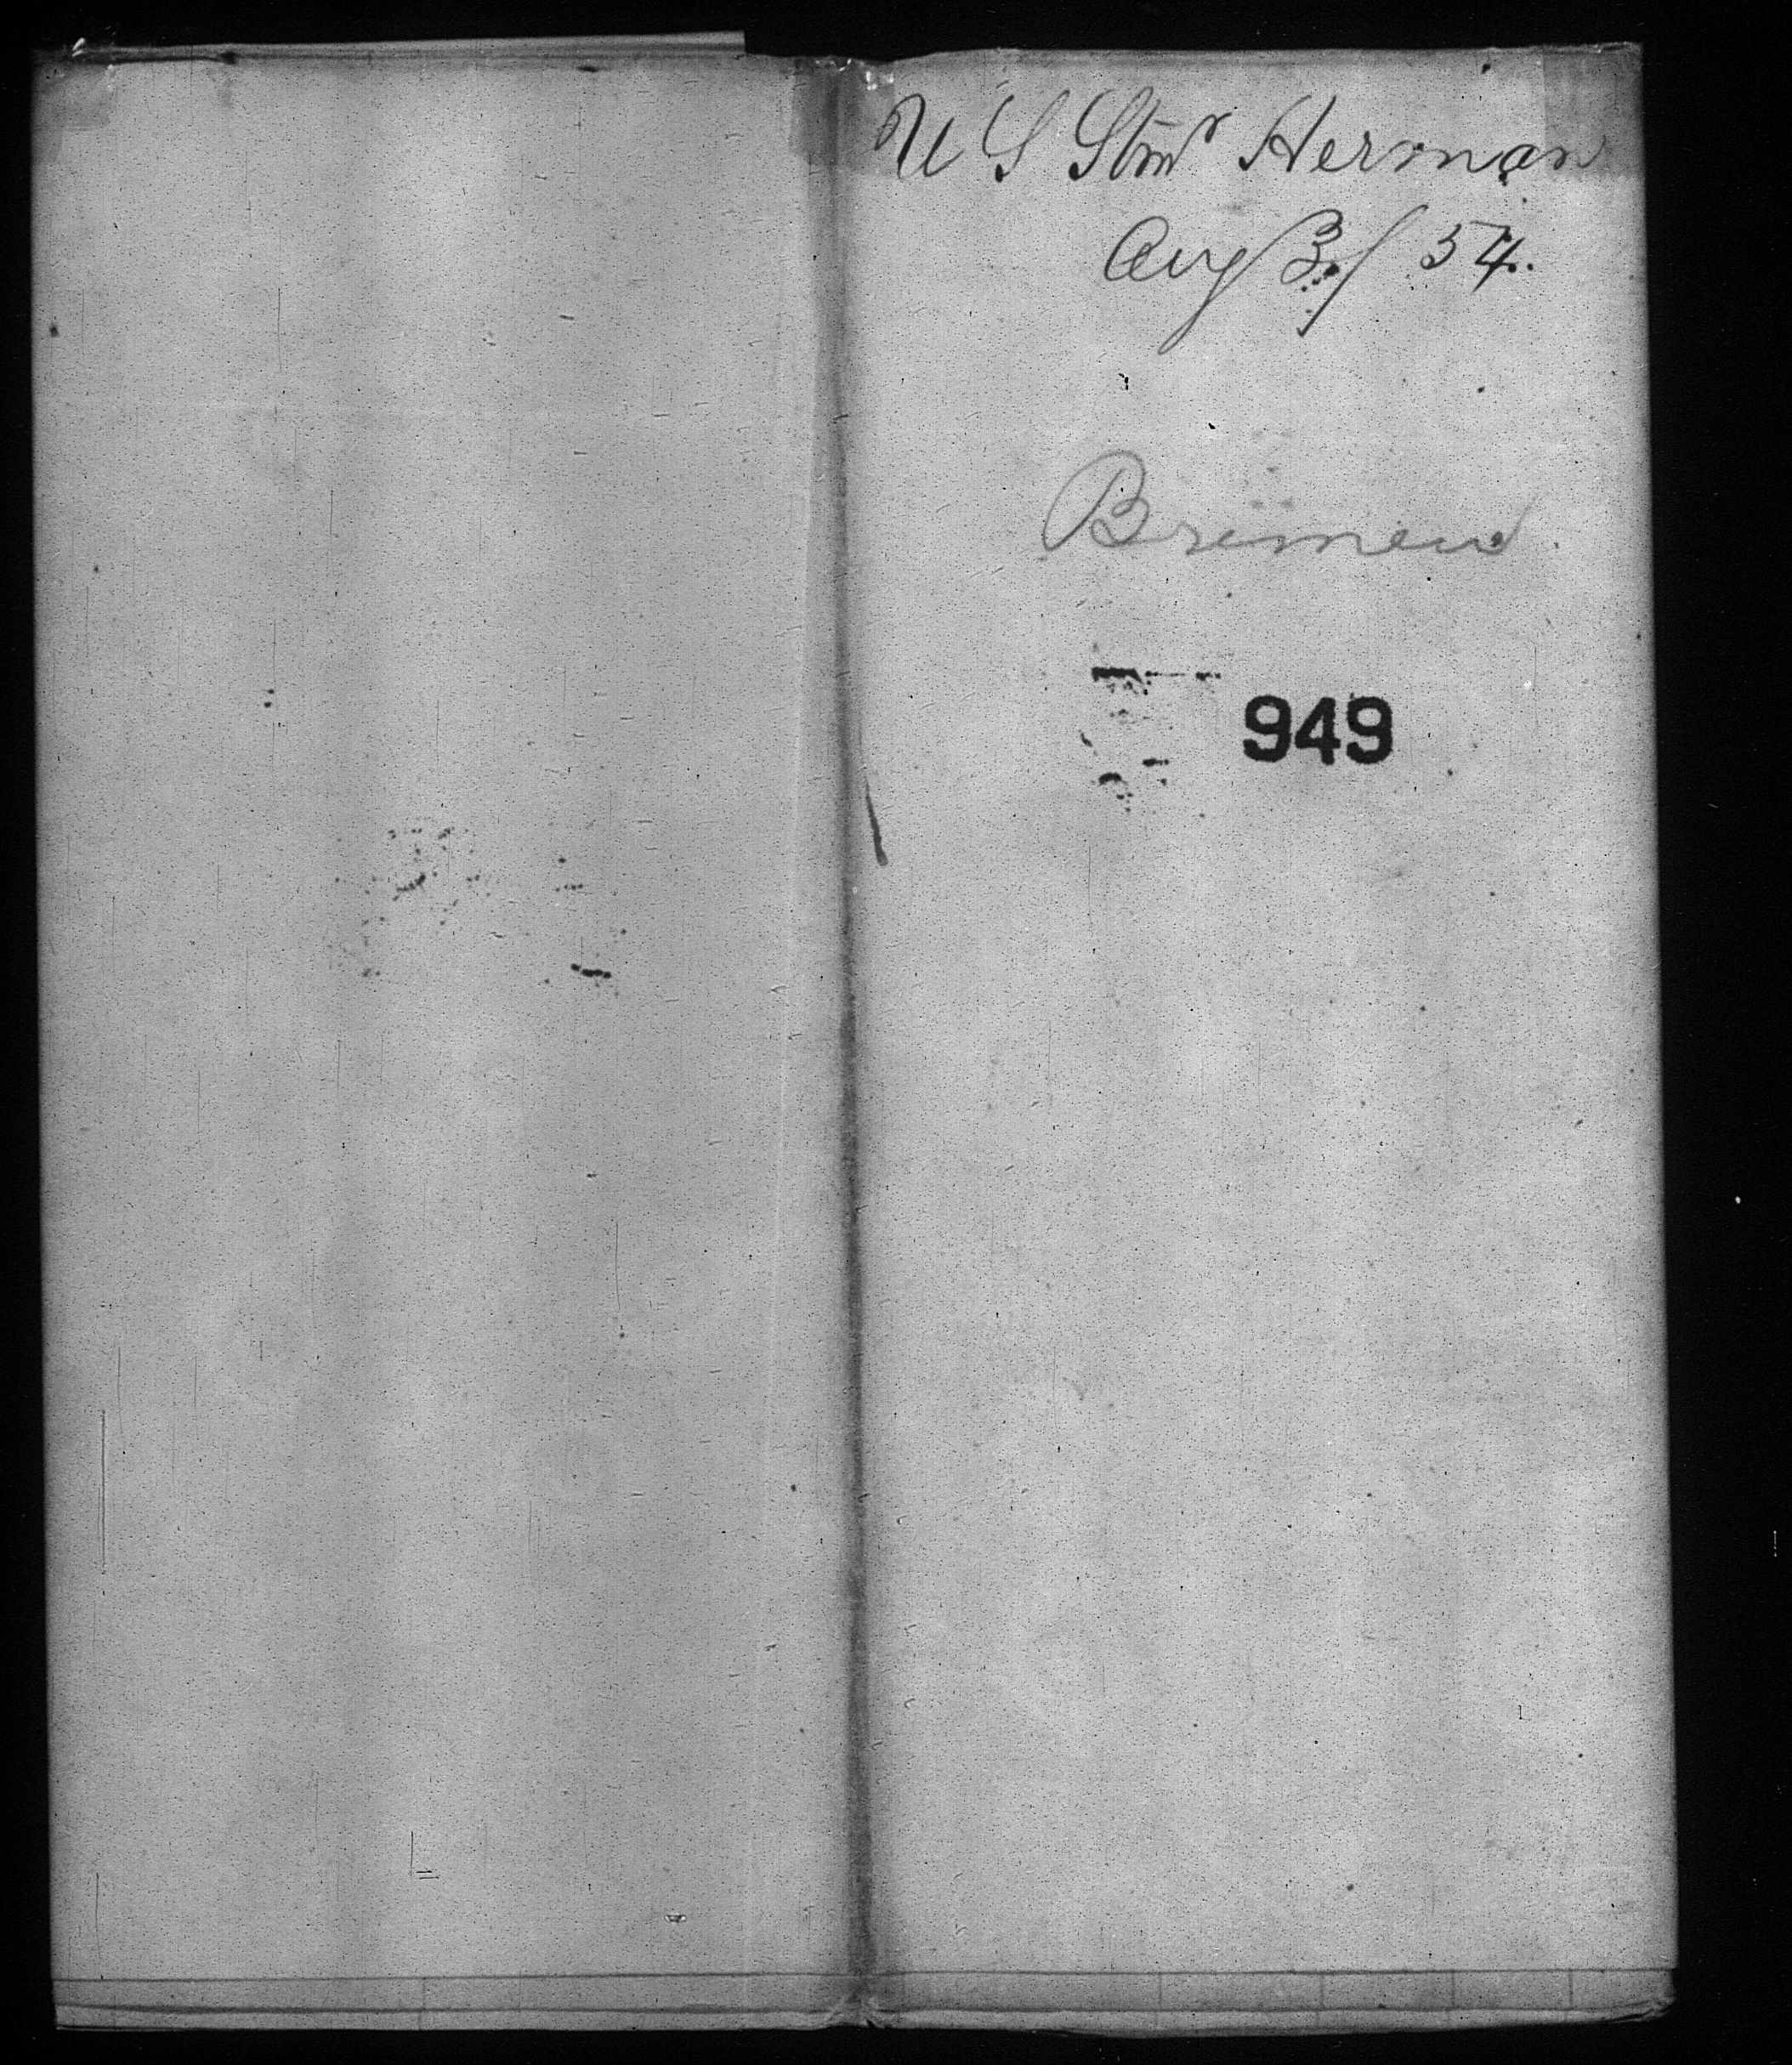 U S Stmr Herman
Aug 3/ 54.
Bremen
949